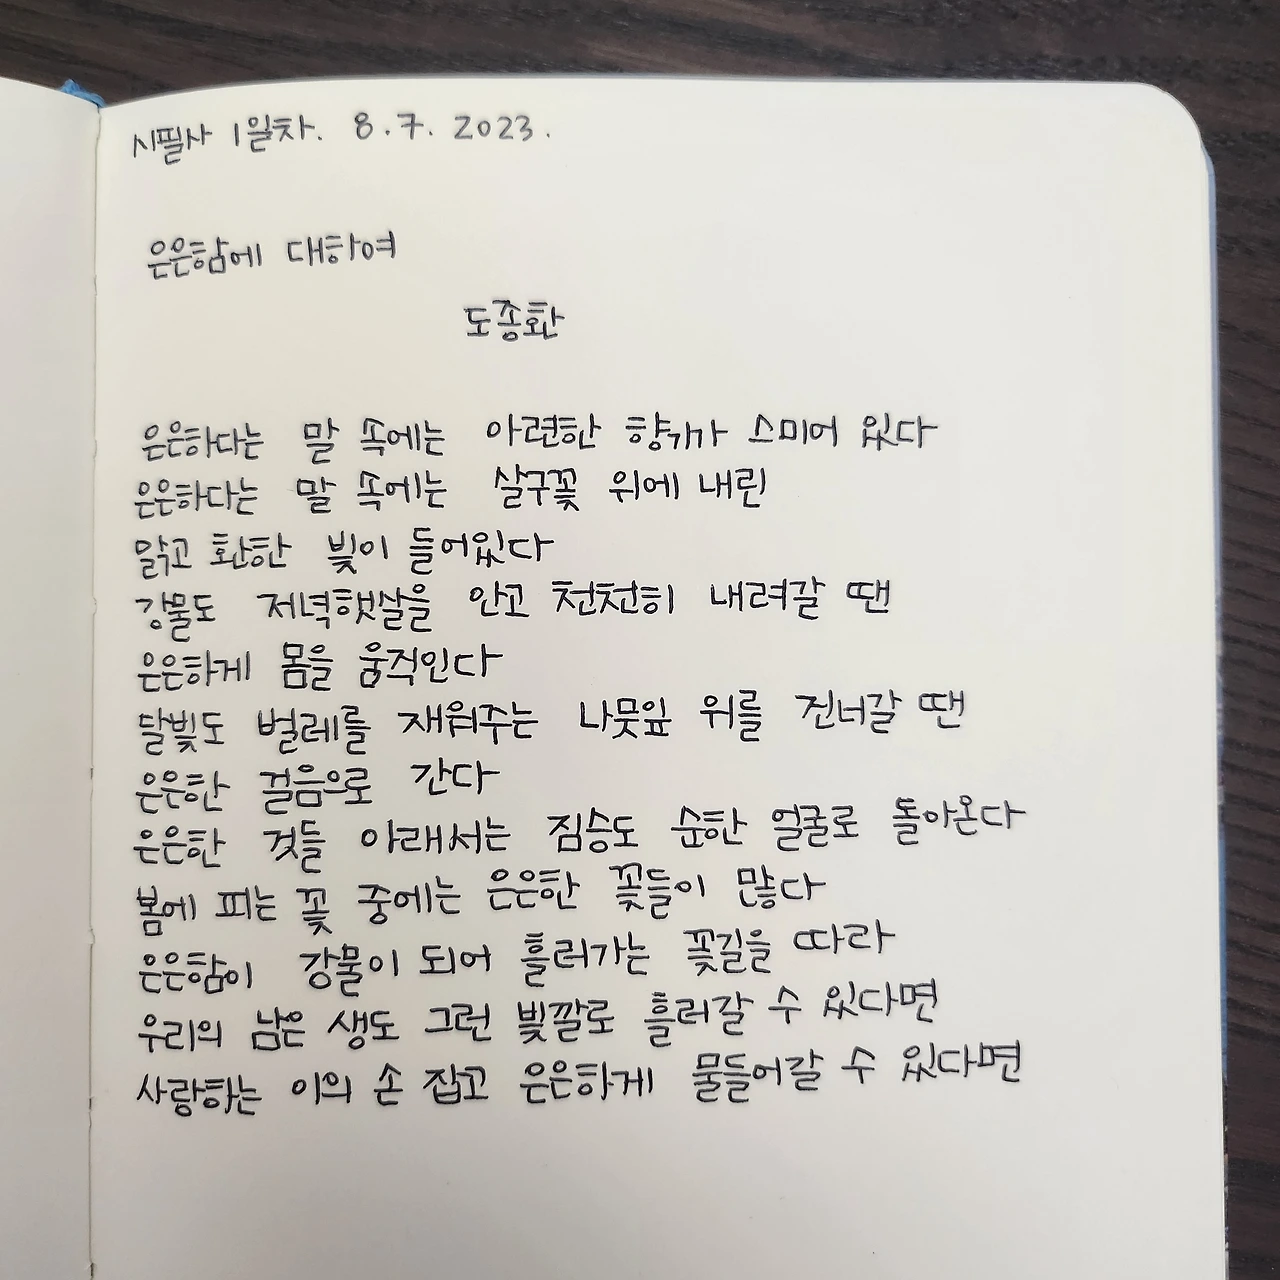 시필사 1일차. 8.7. 2023.
은은함에 대하여
도종환
은은하다는 말 속에는 아련한 향기가 스미어 있다
은은하다는 말 속에는 살구꽃 위에 내린
맑고 환한 빛이 들어있다
강물도 저녁햇살을 안고 천천히 내려갈 땐
은은하게 몸을 움직인다
달빛도 벌레를 재워주는 나뭇잎 위를 건너갈 땐
은은한 걸음으로 간다
은은한 것들 아래서는 짐승도 순한 얼굴로 돌아온다
봄에 피는 꽃 중에는 은은한 꽃들이 많다
은은함이 강물이 되어 흘러가는 꽃길을 따라
우리의 남은 생도 그런 빛깔로 흘러갈 수 있다면
사랑하는 이의 손 잡고 은은하게 물들어갈 수 있다면